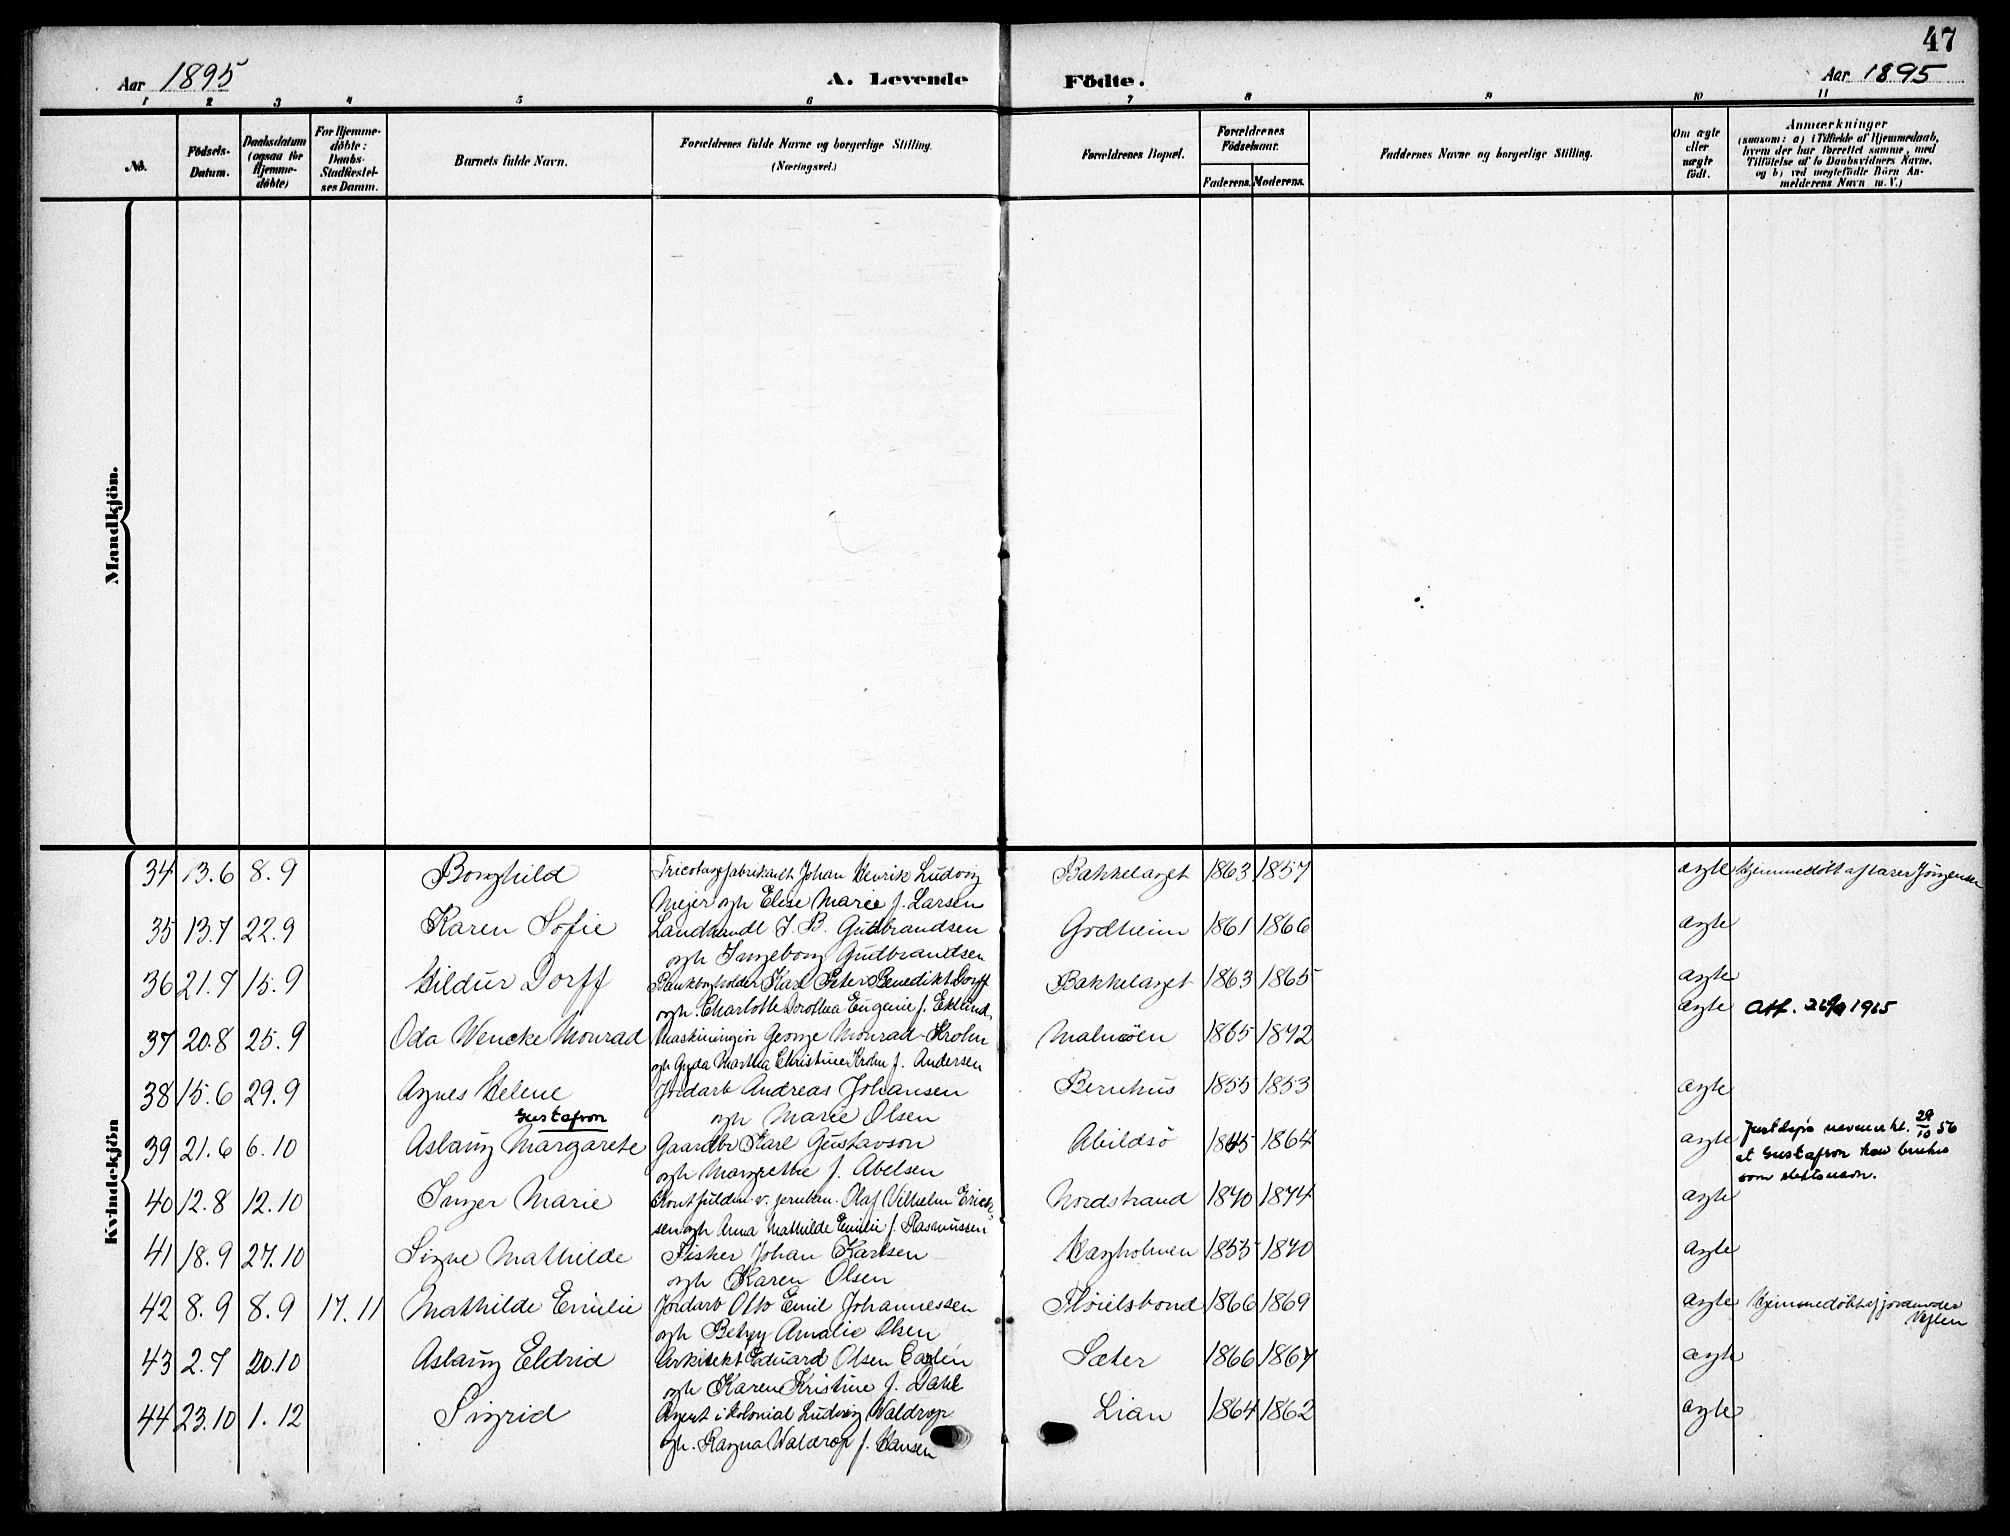 47
Aar 1895 A. Levende Födte. Aar 1895
1 2 3 4 5 6 7 8 9 10 11
No.
Födsels-Datum.
Daabsdatum (ogsaa for Hjemme-döbte)
For Hjemme-döbte: Daabs-Stadfæstel-ses Datum.
Barnets fulde Navn.
Forældrenes fulde Navne og borgerlige Stilling. (Næringsvei.)
Forældrenes Bopæl.
Forældrenes Födselsaar.
Faderens. Moderens.
Faddernes Navne og borgerlige Stilling.
Om ægte eller uægte födt.
Anmærkninger
(saasom: a) i Tilfælde af Hjemmedaab, hvem der har forrettet samme, med Tilföielse af to Daabsvidners Navne. og b) ved uægtefödte Börn An-melderens Navn m. V.)
Mandkjön.
Kvindekjön
34 13.6 8.9 Borghild Tricotagefabrikant Johan Henrik Ludvig Bækkelaget 1863 1857 ægte Hjemmedöbt af Jörgensen
Mejer ogh Elise Marie f. Larsen
35 13.7 22.9 Karen Sofie Landhandl J. B. Gudbrandsen Godheim 1861 1866 ægte
ogh Ingeborg Gudbrandsen
36 21.7 15.9 Hildur Dorff Bankbogholder Karl Peter Benedikt Dorff Bækkelaget 1863 1865 ægte
ogh. Charlotte Dorothea Eugenie f. Eklund. ægte Att. 1915
37 20.8 25.9 Oda Wencke Monrad Maskiningiör George Monrad-Krohn Malmöen 1865 1872
ogh Gyda Martha Christine Krohn f. Andersen
38 15.6 29.9 Agnes Helene Jordarb Andreas Johansen Bernhus 1855 1853 ægte
Gustafson ogh Marie Olsen
39 21.6 6.10 Aslaug Margarete Gaardbr Karl Gustavson Abildsö 1864 ægte Justdeps navnerkl. 29/10 56
ogh Margrethe f. Abelsen at Gustafson kan brukes
som slektsnavn.
40 12.8 12.10 Inger Marie Kontfuldm. v. jernban. Olaf Vilhelm Erick- Nordstrand 1870 1874 ægte
sen ogh Anna Mathilde Emilie f. Rasmussen
41 18.9 27.10 Signe Mathilde Fisker Johan Karlsen Hagholmen 1855 1870 ægte
ogh Karen Olsen
42 8.9 8.9 17.11 Mathilde Emilie Jordarb Otto Emil Johannessen Flöielsbond 1866 1869 ægte Hjemmedöbt af jordmoder
ogh Betzy Amalie Olsen Neflen
43 2.7 20.10 Aslaug Eldrid Arkitekt Eduard Olsen Carlén Sæter 1866 1867 ægte
ogh Karen Kristine f. Dahl
44 23.10 1.12 Sigrid Agent i Kolonial Ludvig Waldrop Lian 1864 1862 ægte
ogh. Ragna Waldrop f. Hansen